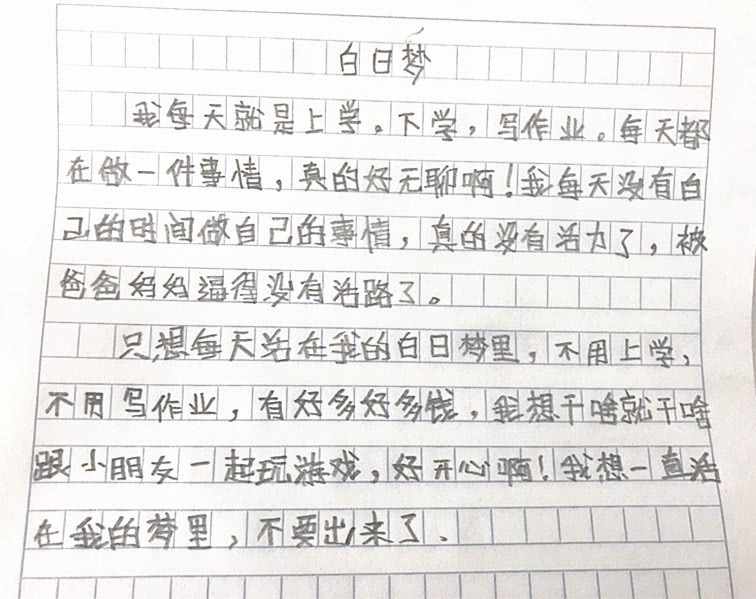 白日梦
我每天就是上学。下学，写作业。每天都
在做一件事情，真的好无聊啊！我每天没有自
己的时间做自己的事情，真的没有活力了，被
爸爸妈妈逼得没有活路了。
只想每天活在我的白日梦里，不用上学，
不用写作业，有好多好多钱，我想干啥就干啥
跟小朋友一起玩游戏，好开心啊！我想一直活
在我的梦里，不要出来了、